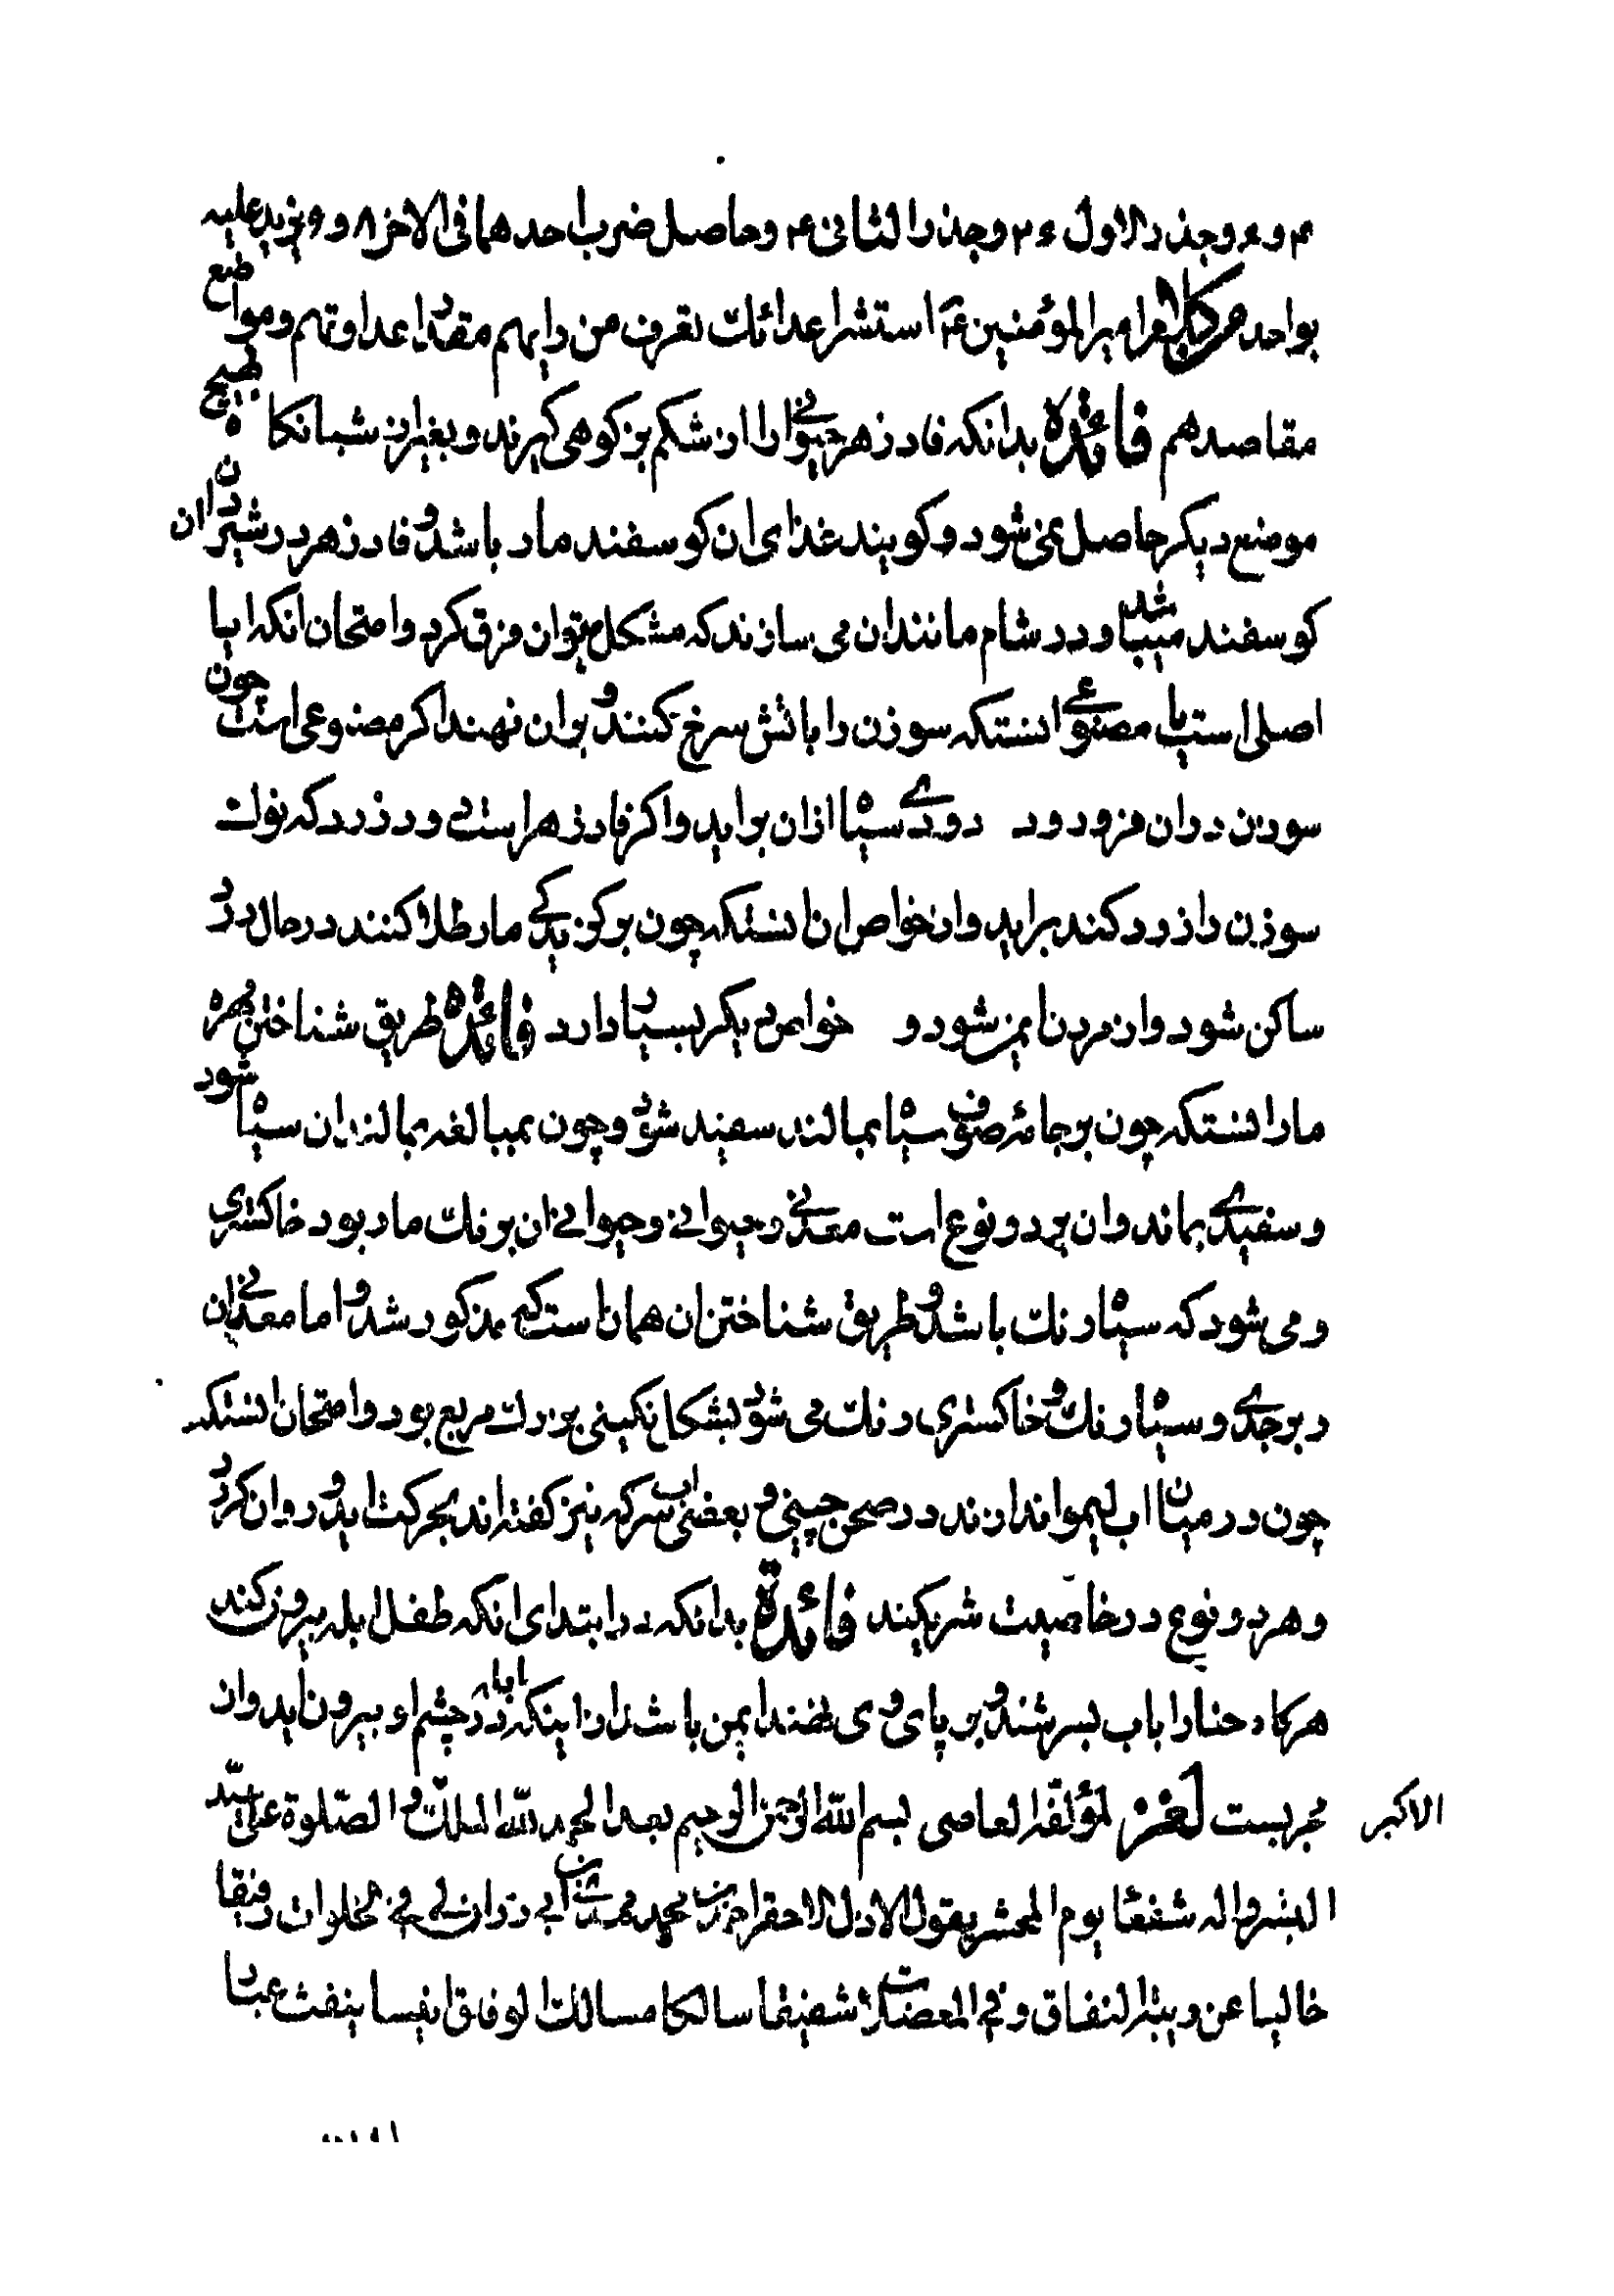 ۴ و ۴ وجذر الاول ۲ وجذر الثانی ۴ وحاصل ضرب احدهما فی الاخر ۸ و ۹ یزید علیه
بواحد من کلام امیر المؤمنین ع استشر اعدائک تعرف من رایهم مقدار عداوتهم ومواضع
مقاصدهم فائدة بدانکه فادزهر حیوانی را از شکم بز کوهی کیرند و بغیر از شبانکاه
موضع دیکر حاصل نمی شود و کویند غذای ان کوسفند مار باشد و فادزهر در شیردان ان
کوسفند میباشد و در شام مانند ان می سازند که مشکل میتوان فرق کرد و امتحان انکه ایا
اصلی است یا مصنوعی انستکه سوزن را باتش سرخ کنند و بران نهند اکر مصنوعی است چون
سوزن دران فرو رود دودی سیاه ازان براید و اکر فادزهر است دود زرد که نوک
سوزن را زرد کند براید و از خواص ان انستکه چون بر کزیدکی مار طلا کنند در حال درد
ساکن شود و از مردن ایمن شود و خواص دیکر بسیار دارد فائدة طریق شناختن مهره
مار انستکه چون بر جامه صوف سیاه بمالند سفید شود و چون بمبالغه بمالند ان سیاه شود
و سفیدی بماند وان بر دو نوع است معدنی و حیوانی و حیوانی ان برنک مار بود خاکستری
و می شود که سیاه رنک باشد و طریق شناختن ان همان است که مذکور شد و اما معدنی ان
زبرجدی و سیاه رنک و خاکستری رنک می شود بشکل نکینی بزرک مربع بود و امتحان انستکه
چون در میان اب لیمو اندازند در صحن چینی و بعضی اب سرکه نیز کفته اند بحرکت اید و روان کردد
و هر دو نوع در خاصیت شریکند فائدة بدانکه در ابتدای انکه طفل ابله بیرون کند
هرکاه حنا را باب بسرشند و بر پای وی نهند ایمن باشد از اینکه ابله در چشم او بیرون اید وان
مجربست لغز لمؤلفه العاصی بسم الله الرحمن الرحیم بعد الحمد لله الملک و الصلوة علی سید
الاکبر
البشر واله شفعاء یوم المحشر یقول الاذل الاحقر ابن محمد ابی ذر النراقی فی الخلوات رفیقا
خالیا عن ریبة النفاق و فی المعضلات شفیقا سالکا مسالک الوفاق انیسا ینفث عباد